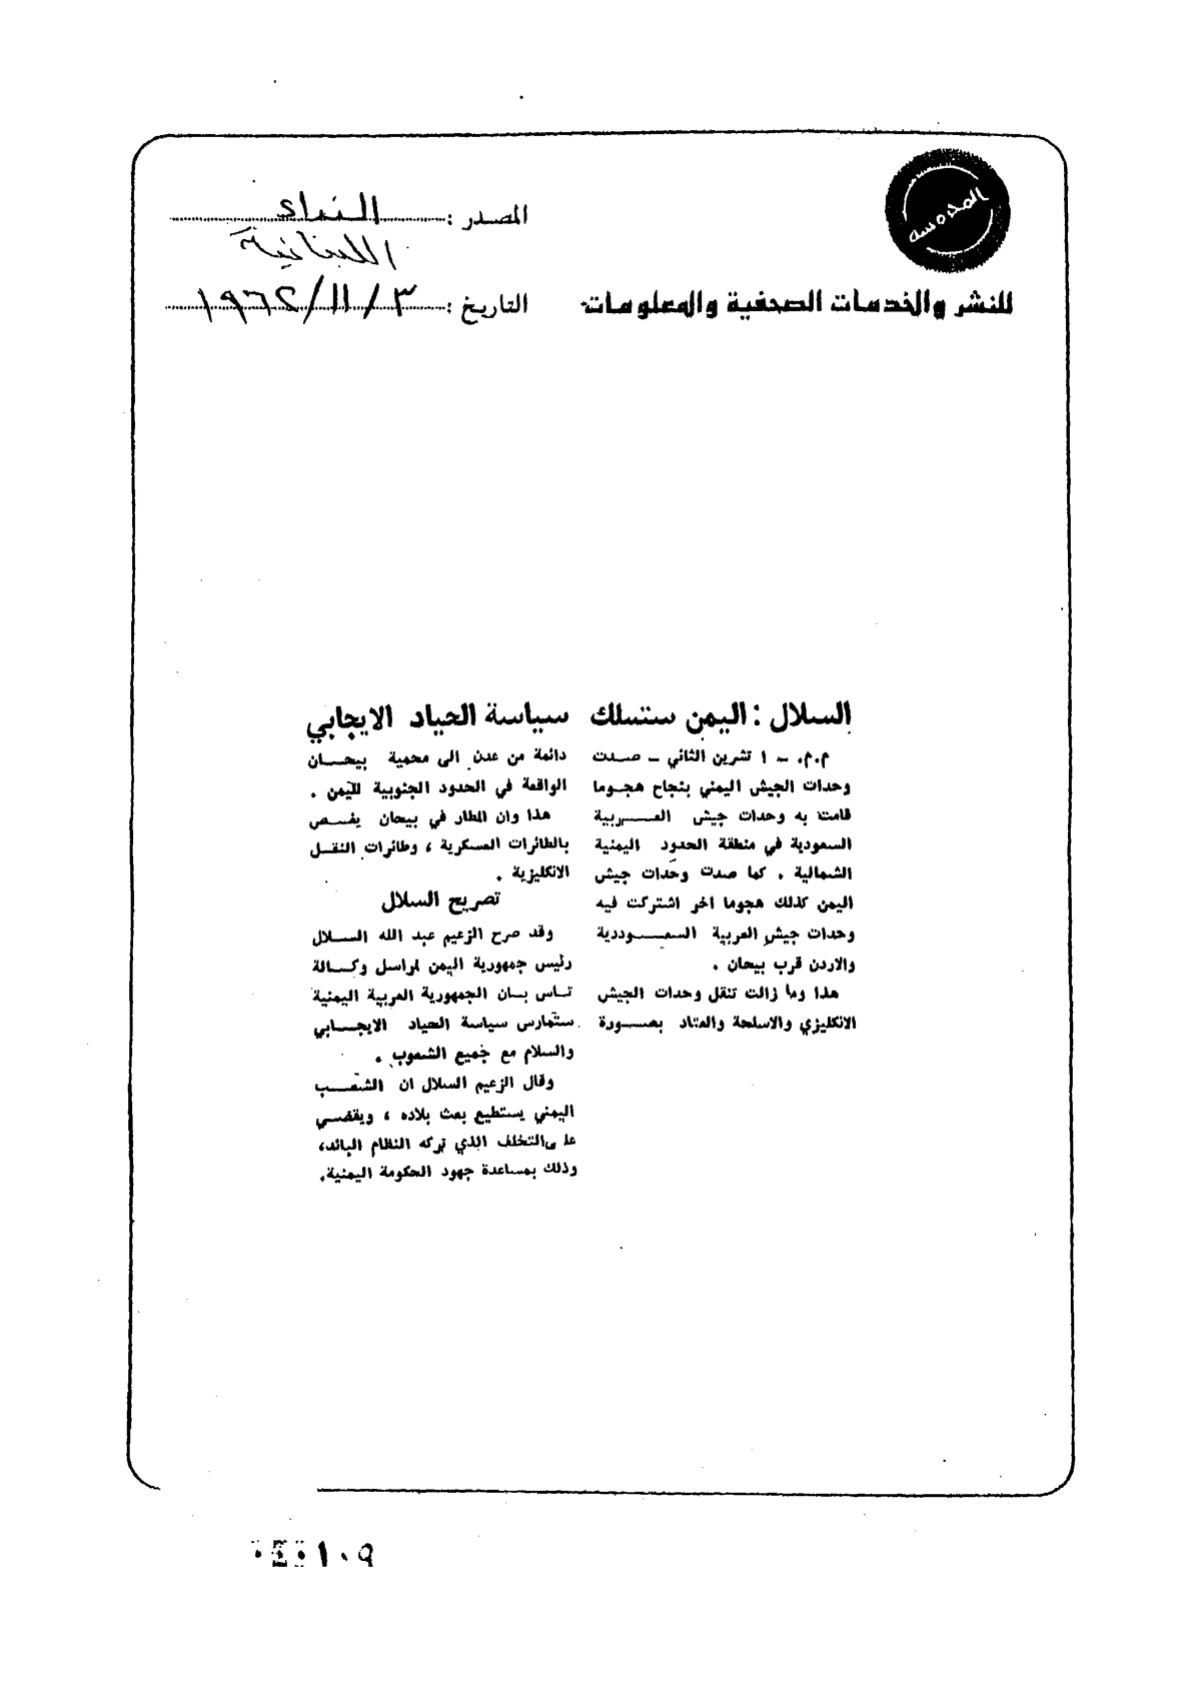 المحروسة
للنشر والخدمات الصحفية والمعلومات
المصدر : النداء
اللبنانية
التاريخ : ٣ / ١١ / ١٩٦٢
السلال : اليمن ستسلك سياسة الحياد الايجابي
م.م. – ١ تشرين الثاني – صدت
وحدات الجيش اليمني بنجاح هجوما
قامت به وحدات جيش العربية
السعودية في منطقة الحدود اليمنية
الشمالية . كما صدت وحدات جيش
اليمن كذلك هجوما اخر اشتركت فيه
وحدات جيش العربية السعوددية
والاردن قرب بيحان .
هذا وما زالت تنقل وحدات الجيش
الانكليزي والاسلحة والعتاد بصورة
دائمة من عدن الى محمية بيحان
الواقعة في الحدود الجنوبية لليمن .
هذا وان المطار في بيحان يغص
بالطائرات العسكرية ، وطائرات النقل
الانكليزية .
تصريح السلال
وقد صرح الزعيم عبد الله السلال
رئيس جمهورية اليمن لمراسل وكالة
تاس بان الجمهورية العربية اليمنية
ستمارس سياسة الحياد الايجابي
والسلام مع جميع الشعوب .
وقال الزعيم السلال ان الشعب
اليمني يستطيع بعث بلاده ، ويقضي
على التخلف الذي تركه النظام البائد،
وذلك بمساعدة جهود الحكومة اليمنية.